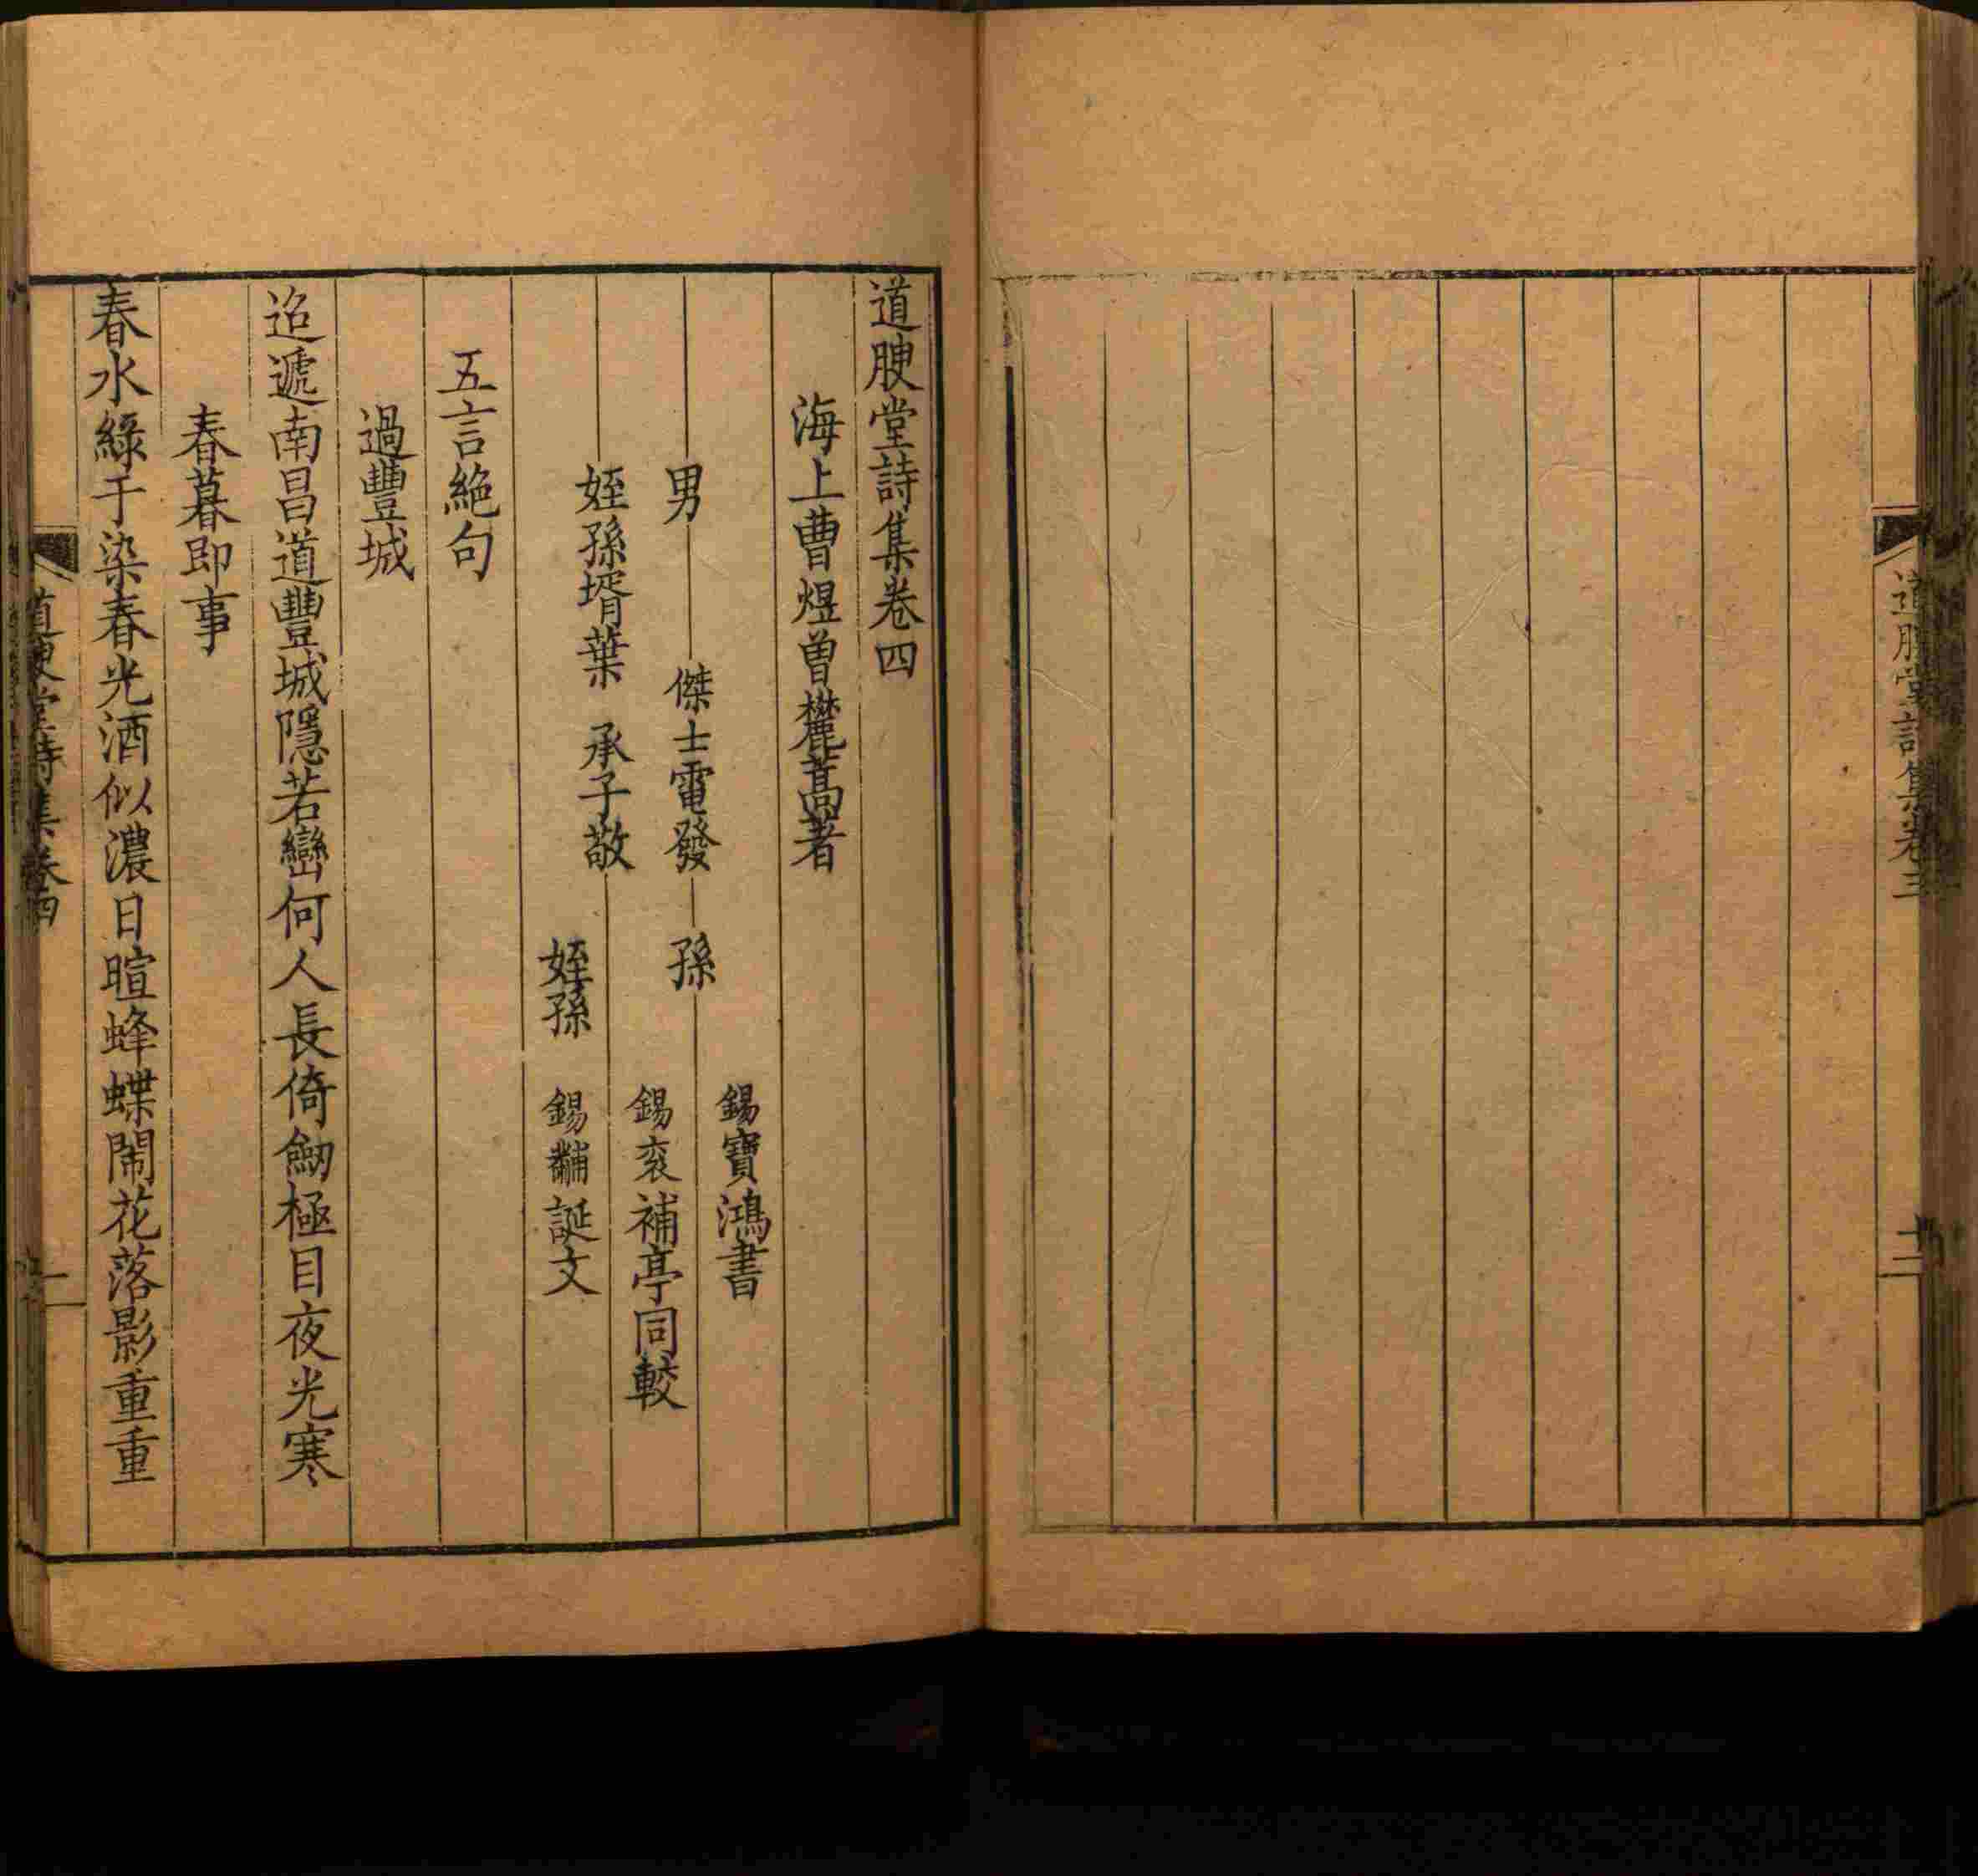 道腴堂詩集卷三
十二
道腴堂詩集卷四
海上曹煜曾麓蒿著
男 傑士電發 孫 錫寶鴻書
錫袞補亭同較
姪孫壻葉 承子敬 姪孫 錫黼誕文
五言絶句
過豐城
迢遞南昌道豐城隱若巒何人長倚劒極目夜光寒
春暮即事
春水綠于染春光酒似濃日暄蜂蝶鬧花落影重重
道腴堂詩集卷四
一